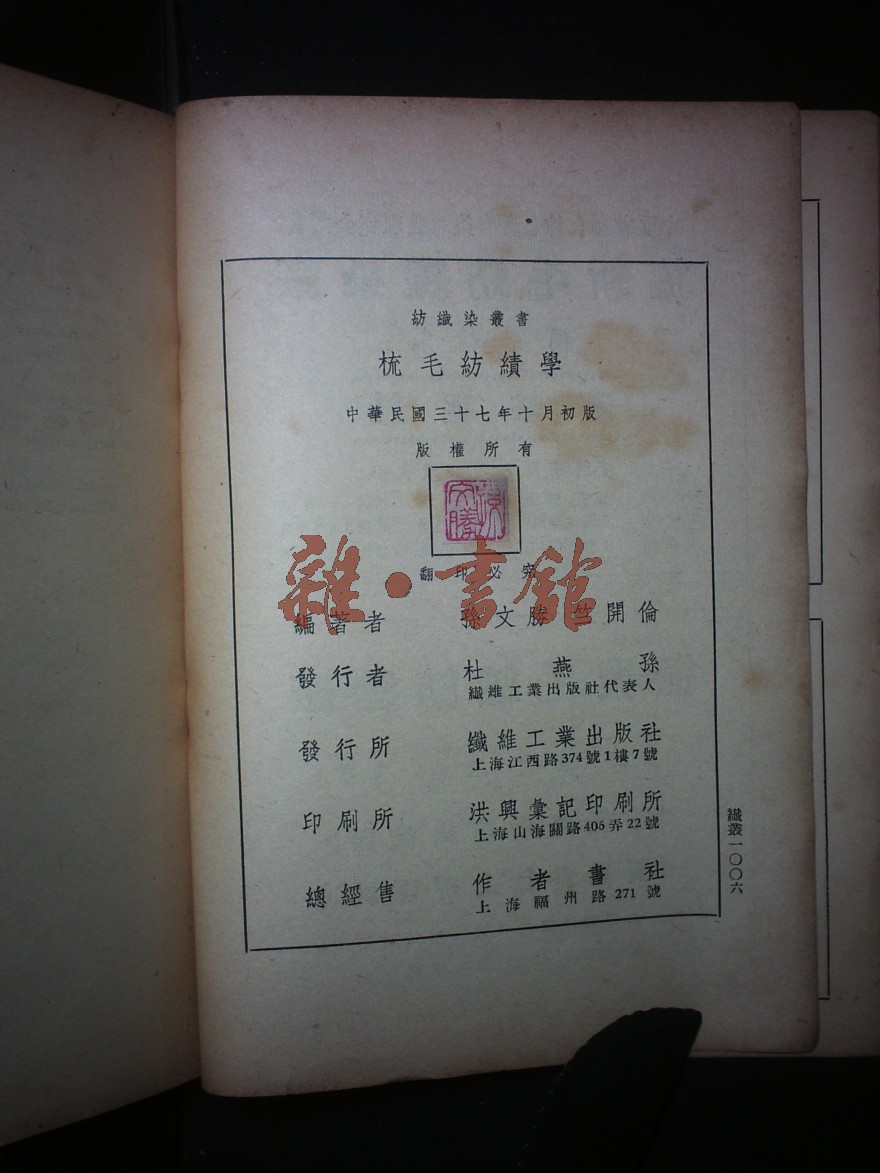 紡織染叢書
梳毛紡績學
中華民國三十七年十月初版
版權所有
孫文勝
翻印必究
雜·書館
編著者 孫文勝 竺開倫
發行者 杜燕孫
纖維工業出版社代表人
發行所 纖維工業出版社
上海江西路374號1樓7號
印刷所 洪興彙記印刷所
上海山海關路406弄22號
總經售 作者書社
上海福州路271號
纖叢一〇〇六